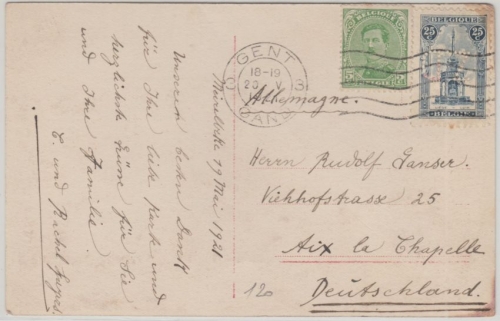 Mirelbeke 19 Mai 1921
Unseren besten Dank
für Ihre liebe Karte und
herzlichste Grüsse für Sie
und Ihre Familie
E. und Rachel
GENT
18-19
20 V
3
GAND
BELGIQUE
5
BELGIE
BELGIQUE
25 C
25 C
BELGIE
Allemagne.
Herrn Rudolf Ganser.
Viehhofstrasze 25
Aix la Chapelle
Deutschland.
120